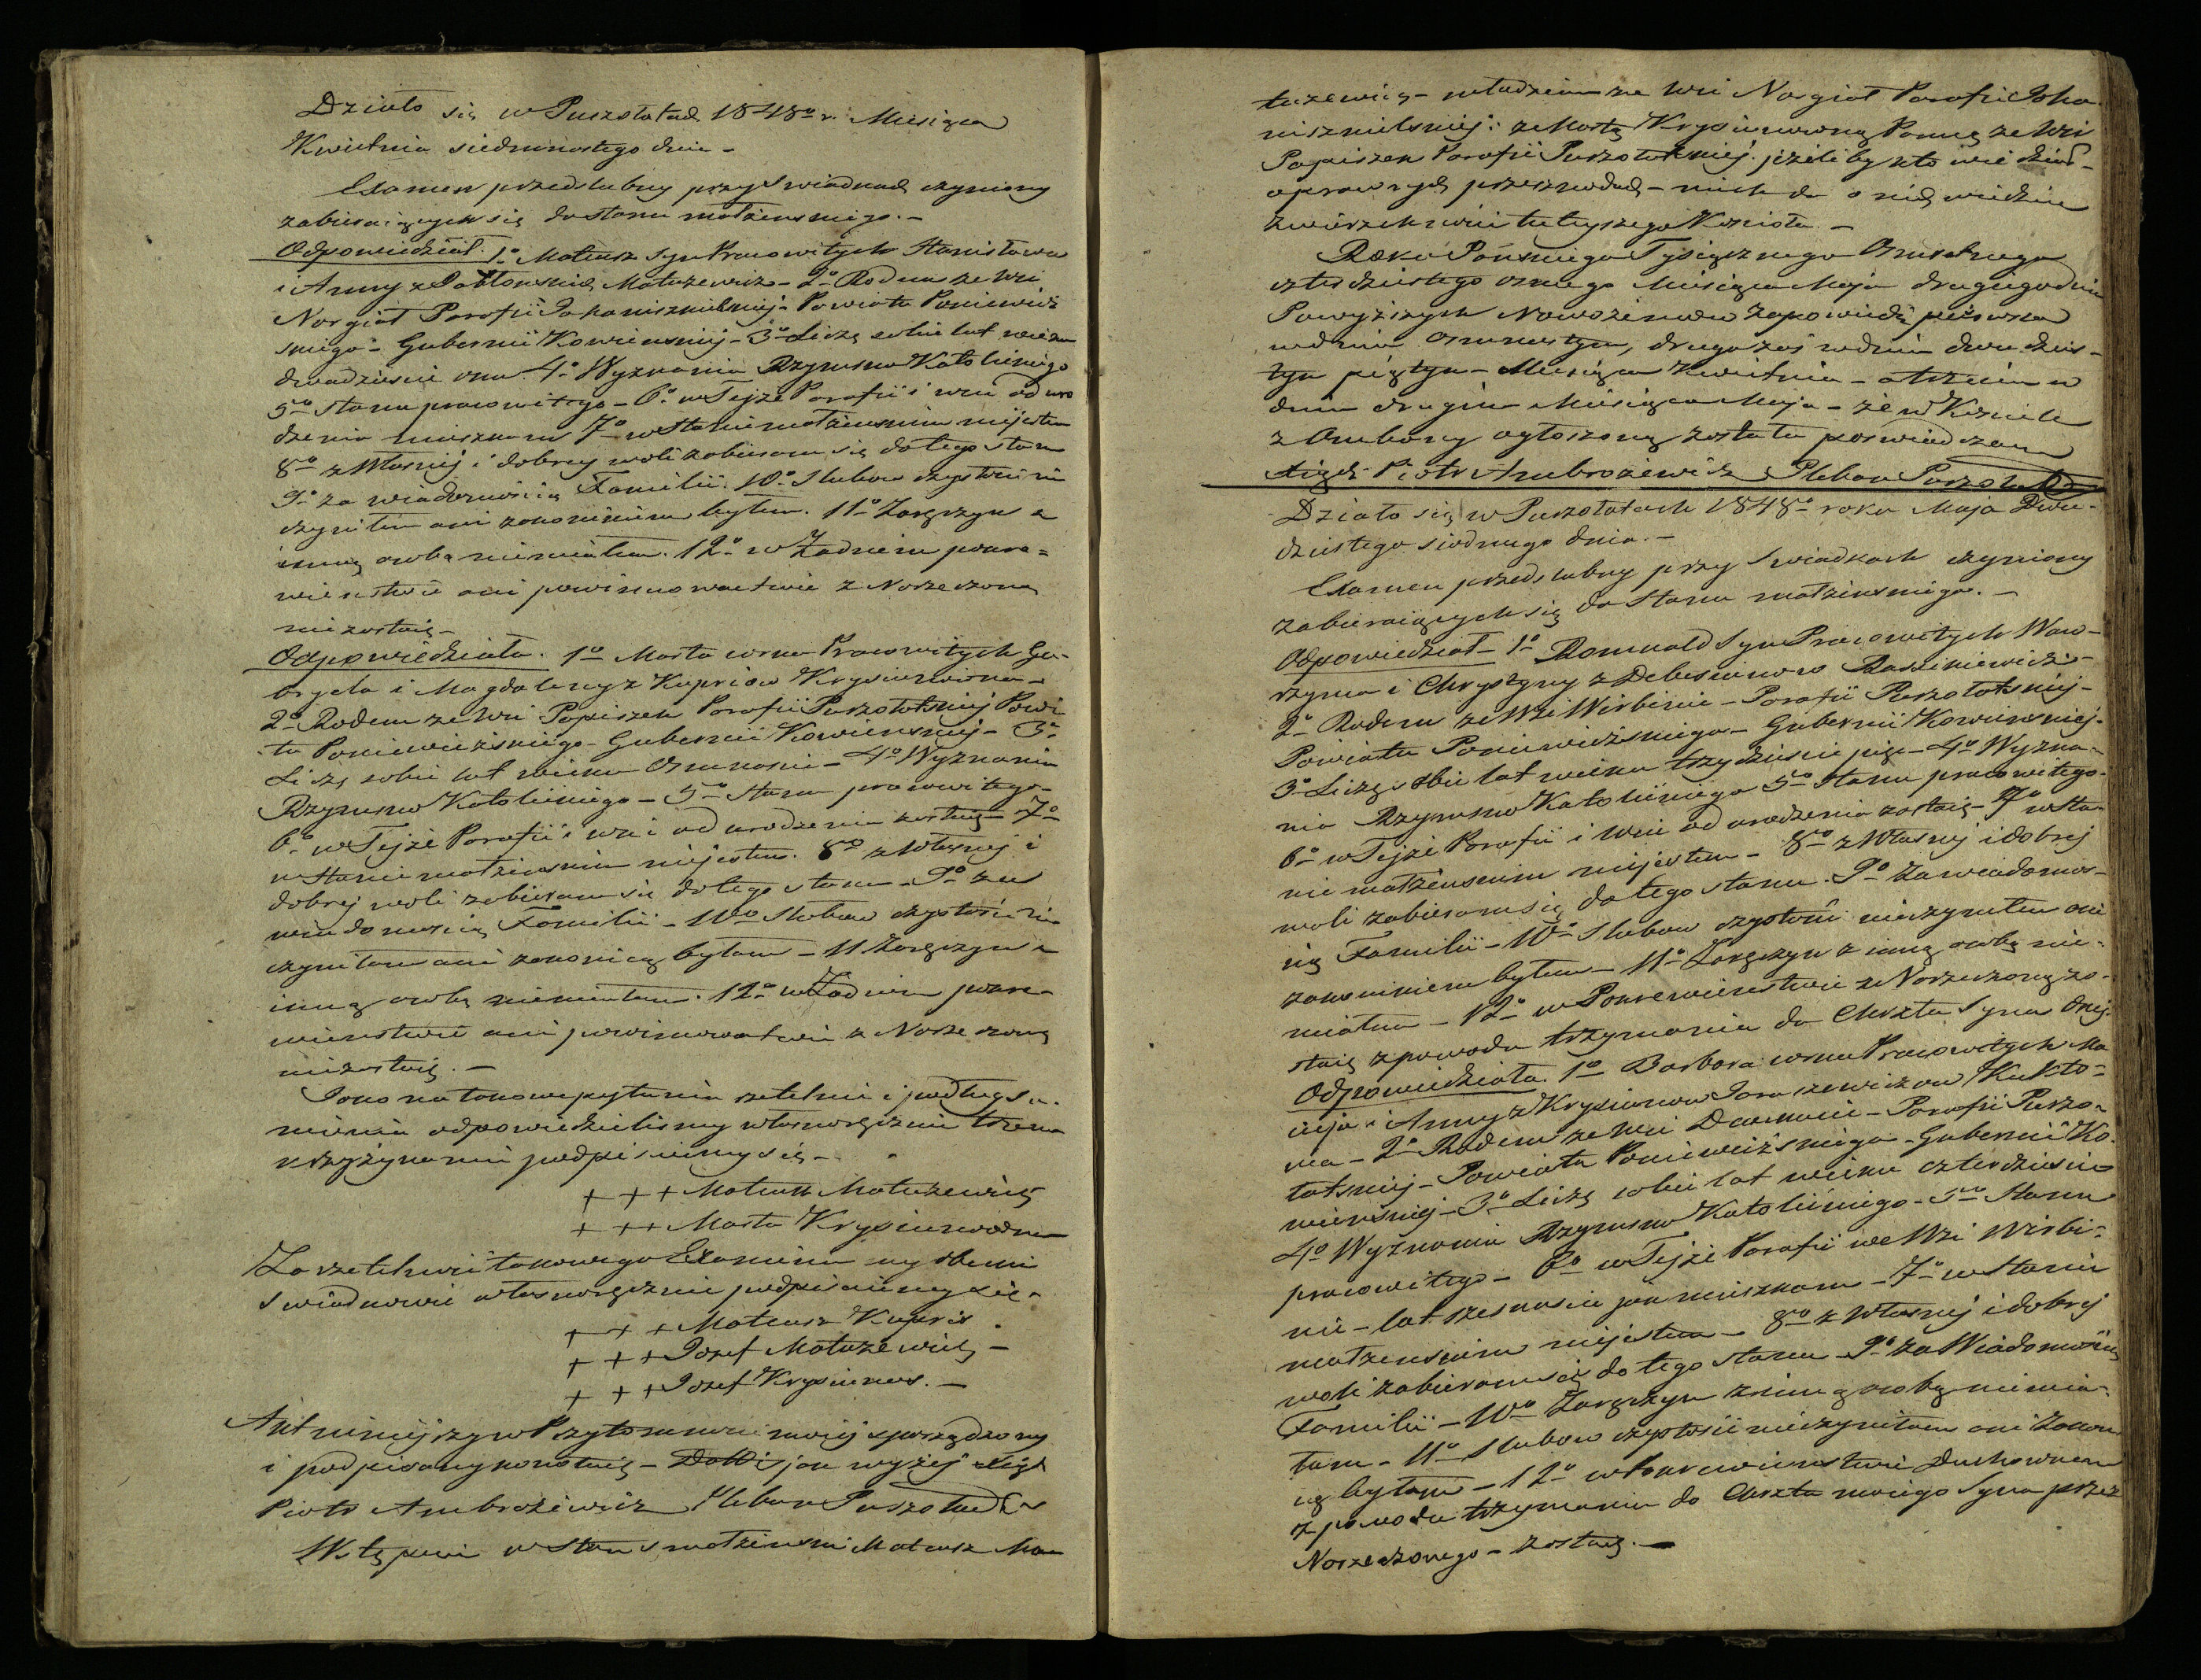 Działo się w Puszołatach 1848o r. Miesiąca
Kwietnia siedmnastego dnia -
Examen przedślubny przy Swiadkach czyniony
zabieraiących się do stanu małżenskiego. -
Odpowiedział. 1o Mateusz Syn Pracowitych Stanisława
i Anny z Matuzewicz - 2o Rodem ze wsi
Norgiał Parafii Powiatu Poniewież
skiego - Gubernii Kowienskiej - 3o Liczę sobie lat wieku
dwadziescie 4o Wyznania Rzymsko Katolickiego
5o Stanu pracowitego - 6o w Tejże Parafii i wsi od uro
dzenia mieszkam 7o w Stanie małżenskim niejestem
8o z Własnej i dobrej woli zabieram się do tego stanu
9o za wiadomością Familii. 10o Slubow czystości nie
czyniłem ani zakonnikiem byłem. 11o Zaręczyn z
inną osobą niemiałem. 12o w Żadnem pokre=
wienstwie ani powinowactwie z Narzeczoną
niezostaię -
Odpowiedziała. 1o Marta corka Pracowitych Ga-
bryela i Magdaleny z Kuprisow Krysiunowna -
2o Rodem ze wsi Papiszek Parafii Puszołatskiej Powi
tu Poniewieżskiego - Gubernii Kowienskiej - 3o
Liczę sobie lat wieku Osmnascie - 4o Wyznania
Rzymsko Katolickiego - 5o Stanu pracowitego -
6o w Tejże Parafii i wsi od urodzenia zostaię 7o
w Stanie małżenskim niejestem. 8o z Własnej i
dobrej woli zabieram się do tego stanu - 9o za
wiadomością Familii - 10o Slubow czystości nie
czyniłam ani zakonnicą byłam - 11 Zaręczyn z
inną osobą niemiałam. 12o w Żadnem pokre-
wienstwie ani powinowactwie z Narzeczonym
niezostaię. -
Jako na takowe pytania rzetelnie i podług su-
mienia odpowiedzielismy własnoręcznie trzema
krzyżykami podpisuiemy się -
+ + + Mateusz Matuzewicz
+ + + Marta Krysiunowna
Za rzetelność takowego Examenu my obecni
swiadkowie własnoręcznie podpisuiemy się -
+ + + Mateusz Kupris.
+ + + Jozef Matuzewicz -
+ + + Jozef Krysiunas. -
Akt niniejszy w Przytomności moiej sporządzony
i podpisany - jak wyżej
Piotr Ambrożewicz Pleban
Wstępuie w Stan małżenski Mateusz Ma
tuzewicz - młodzian ze wsi Norgiał Parafii Joha
niszkielskiej: z Martą Krysiunowną Panną ze wsi
Papiszek Parafii Puszołatskiej. jeżeliby kto wiedział
o prawnych przeszkodach - niech da o nich wiedzieć
Zwierzchności tutejszego Koscioła. -
Roku Pańskiego Tysiącznego Osmsetnego
czterdziestego osmego Miesiąca Maja drugiego dnia
Powyższych Nowożencow Zapowiedź pierwsza
w dniu Osmnastym, druga zaś w dniu dwudzies-
tym piątym - Miesiąca Kwietnia - a trzecia w
dniu drugim Miesiąca Maja - że w Kosciele
z Ambony ogłoszoną została poswiadczam
Piotr Ambrożewicz Pleban
Działo się w Puszołatach 1848o roku Maja Dwu-
dziestego siodmego dnia. -
Examen przedślubny przy Swiadkach czyniony
zabieraiących się do Stanu małżenskiego. -
Odpowiedział - 1o Romuald Syn Pracowitych Waw-
rzyna i Chrystyny z
2o Rodem ze Wsi - Parafii Puszołatskiej -
Powiatu Poniewieżskiego - Gubernii Kowienskiej -
3o Liczę sobie lat wieku trzydziescie pięc - 4o Wyzna-
nia Rzymsko Katolickiego 5o Stanu pracowitego -
6o w Tejże Parafii i Wsi od urodzenia zostaię - 7o w Sta-
nie małżenskim niejestem - 8o z Własnej i dobrej
woli zabieram się do tego stanu. 9o Za wiadomos-
cią Familii - 10o Slubow czystości nieczyniłem ani
zakonnikiem byłem - 11o Zaręczyn z inną osobą nie-
miałem - 12o w Pokrewienstwie z Narzeczoną zo-
staię z powodu trzymania do Chrztu Syna Onej
Odpowiedziała. 1o Barbara corka Pracowitych Ma
cieja i Anny z Krysiunow
- 2o Rodem ze Wsi - Parafii Puszo-
łatskiej - Powiatu Poniewieżskiego - Gubernii Ko-
wienskiej - 3o Liczę sobie lat wieku czterdziescie
4o Wyznania Rzymsko Katolickiego - 5o Stanu
pracowitego - 6o w Tejże Parafii we Wsi Wirbi-
nie - lat szesnascie jak mieszkam - 7o w Stanie
małżenskim niejestem - 8o z Własnej i dobrej
woli zabieram się do tego stanu - 9o za Wiadomością
Familii - 10o Zaręczyn z inną osobą niemia-
łam - 11o Slubow czystości nieczyniłam ani Zakon
cą byłam - 12o w Pokrewienstwie Duchownem
z powodu trzymania do Chrztu moiego Syna przez
Narzeczonego - Zostaię. -